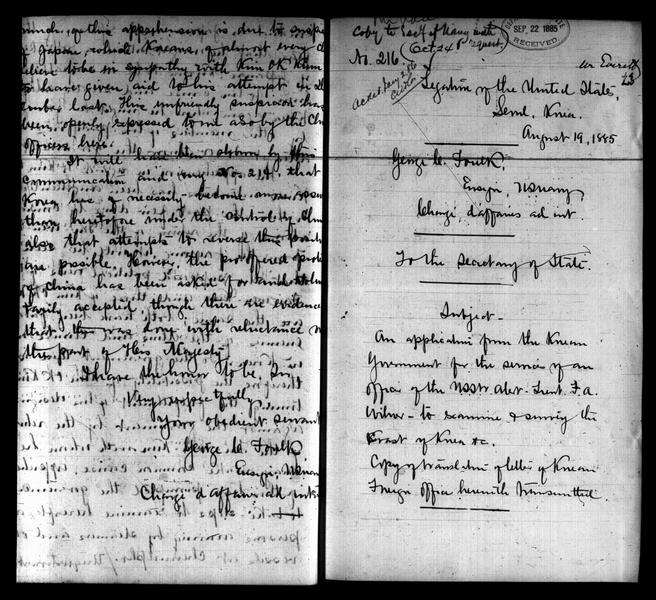 mind, as this apprehension is due to
of Japan, while Koreans, & almost every
believe to be in sympathy with Kim Ok Kium
to have given aid to his attempt in
last. This unfriendly suspicion has
been openly expressed to me also by the
officers here.
It will have been shown by this
communication and my No. 214, that
Korea has of necessity become more
than heretofore under the control of China
also that attempts to reverse this
are possible. However, the proffered
of China has been asked for and
accepted, though there are evidences
that this was done with reluctance
the part of His Majesty.
I have the honor to be, Sir,
Very respectfully
Your obedient servant
George C. Foulk,
Ensign, U.S. Navy
Chargé d'affaires ad interim
Copy to Secty of Navy
Oct 24
request.
SEP. 22 1885
RECEIVED
No. 216.
Mr Everett
Legation of the United States,
Seoul, Korea.
August 19, 1885
George C. Foulk,
Ensign, U.S. Navy,
Chargé d'affaires ad int.
To the Secretary of State.
Subject—
An application from the Korean
Government for the services of an
officer of the U.S.S. Alert - Lieut. F. A.
Wilner - to examine & survey the
Coast of Korea &c.
Copy of translation of letter of Korean
Foreign Office herewith transmitted.